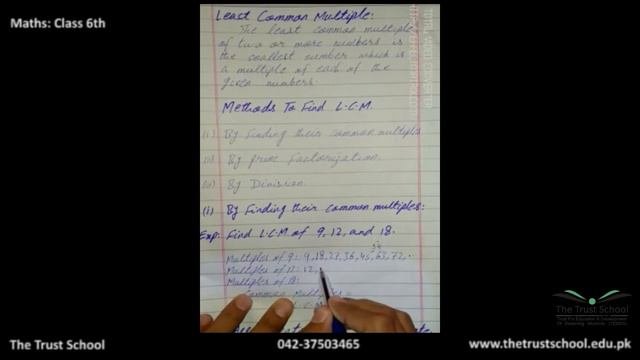 Maths: Class 6th
Least Common Multiple:
The least common multiple
of two or more numbers is
the smallest number which is
a multiple of each of the
given numbers.
Methods To Find L.C.M
(i) By Finding their common multiples
By Prime Factorization.
By Division
(i) By Finding their Common multiples:
Exp: Find L.C.M of 9, 12, and 18.
54
Multiples of 9: 9, 18, 27, 36, 45, 63, 72,
Multiples of 12: 12,
Multiples of 18:
Common Multiples =
The Trust School
The Trust School
042-37503465
www.thetrustschool.edu.pk